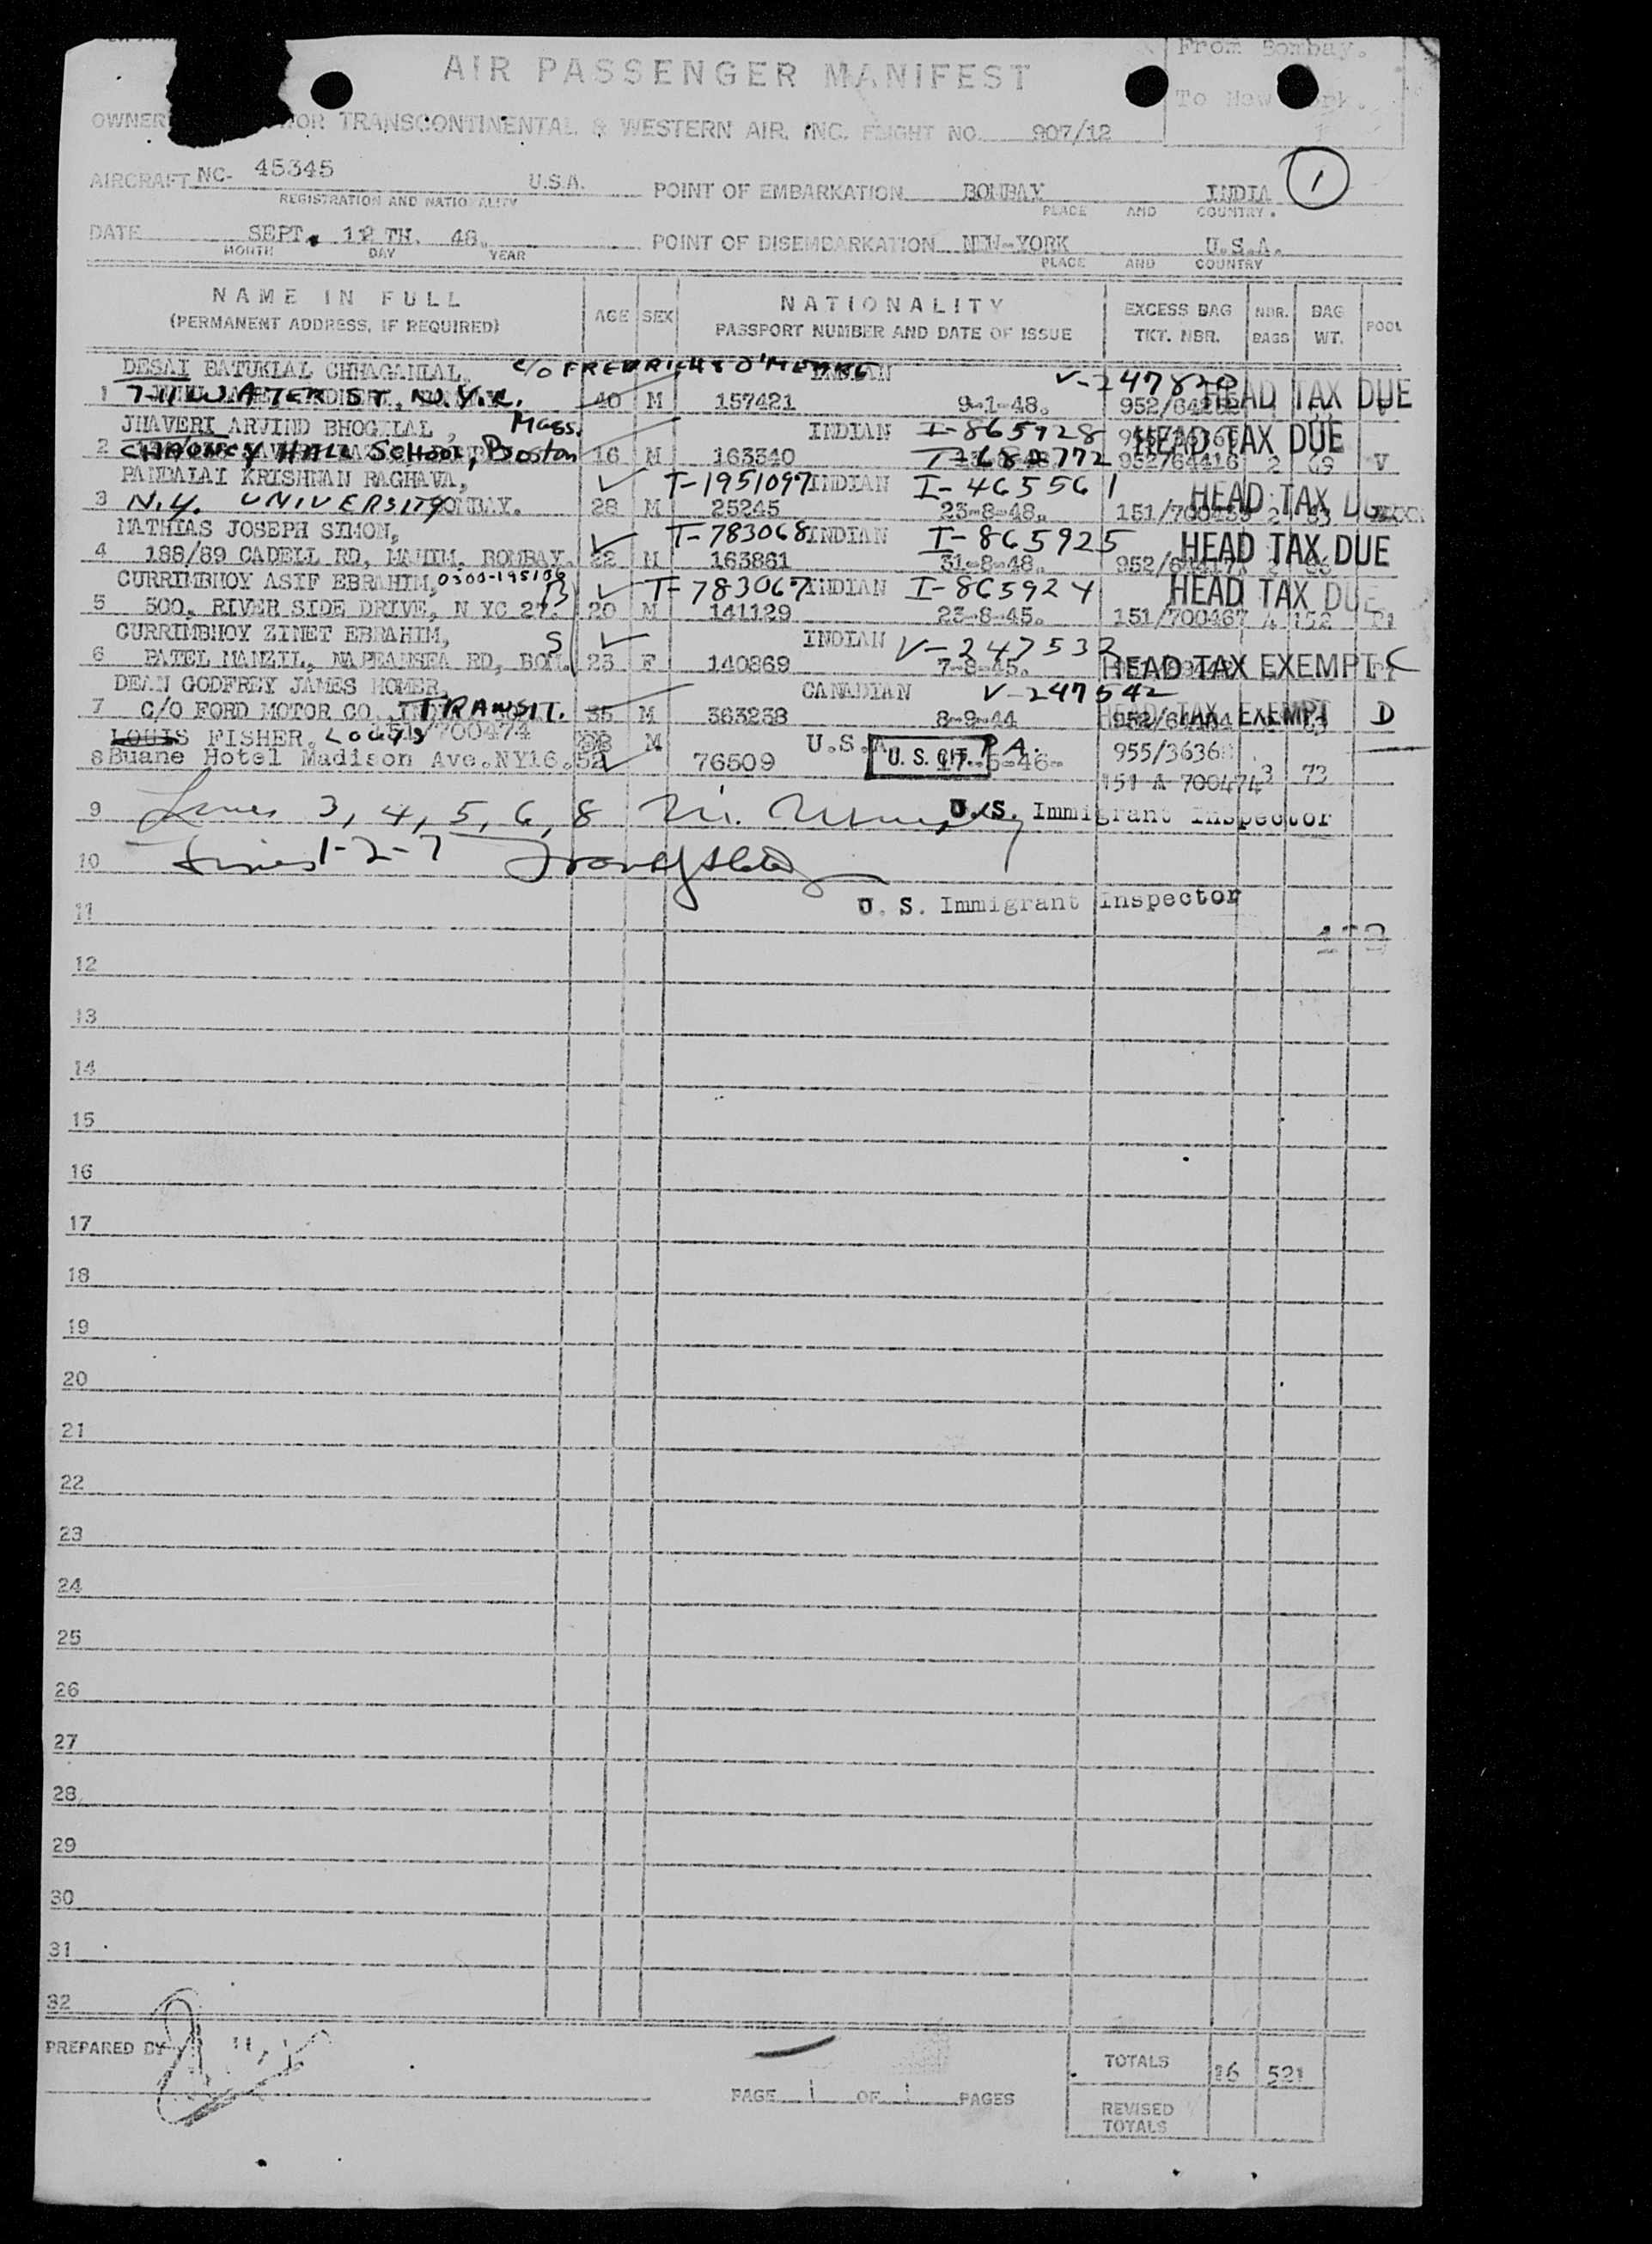 From Bombay.
AIR PASSENGER MANIFEST
To New York.
OWNER TRANSCONTINENTAL & WESTERN AIR. INC. FLIGHT NO. 907/12
1
AIRCRAFT NC- 45345 U.S.A. POINT OF EMBARKATION BOMBAY INDIA
REGISTRATION AND NATIONALITY PLACE AND COUNTRY.
DATE SEPT. 12 TH. 48. POINT OF DISEMBARKATION NEW-YORK U.S.A.
MONTH DAY YEAR PLACE AND COUNTRY
NAME IN FULL AGE SEX NATIONALITY EXCESS BAG NBR. BAG POOL
(PERMANENT ADDRESS, IF REQUIRED) PASSPORT NUMBER AND DATE OF ISSUE TKT. NBR. BAGS WT.
DESAI BATUKLAL CHHAGANLAL, C/O INDIAN V-247820 HEAD TAX DUE
1 WATER ST., N.Y.K. 40 M 157421 9-1-48.
JHAVERI ARVIND BHOGILAL, Mass. INDIAN I-865928 HEAD TAX DUE
2 CHAUNCY HALL SCHOOL, Boston 16 M 163340 952/64416 2 69 V
PANDALAI KRISHNAN RAGHAVA, T-1951097 INDIAN I-465561 HEAD TAX DUE
3 N.Y. UNIVERSITY BOMBAY. 28 M 25245 23-8-48. 2
MATHIAS JOSEPH SIMON, T-783068 INDIAN I-865925 HEAD TAX DUE
4 188/89 CADELL RD, MAHIM, BOMBAY. 22 M 163861 31-8-48.
CURRIMBHOY ASIF EBRAHIM, T-783067 INDIAN I-865924 HEAD TAX DUE
5 500, RIVER SIDE DRIVE, N YC 27. 20 M 141129 23-8-45. 151/700467 4 152
CURRIMBHOY ZINET EBRAHIM, S INDIAN V-247532
6 PATEL MANZIL, NAPEANSEA RD, BOM. 23 F 140869 7-8-45. HEAD TAX EXEMPT C
DEAN GODFREY JAMES HOMER, CANADIAN V-247542
7 C/O FORD MOTOR CO. TRANSIT. 35 M 363238 8-9-44 HEAD TAX EXEMPT D
LOUIS FISHER. LOUIS /700474 M U.S.A. P.A. 955/3636
8 Buane Hotel Madison Ave.NY16. 52 76509 U. S. CIT. 151 A 700474 3 73
9 Lines 3, 4, 5, 6, 8 U. S. Immigrant Inspector
10 Lines 1-2-7
11 U. S. Immigrant Inspector
12
13
14
15
16
17
18
19
20
21
22
23
24
25
26
27
28
29
30
31
32
PREPARED BY
TOTALS 16 521
PAGE 1 OF 1 PAGES
REVISED TOTALS